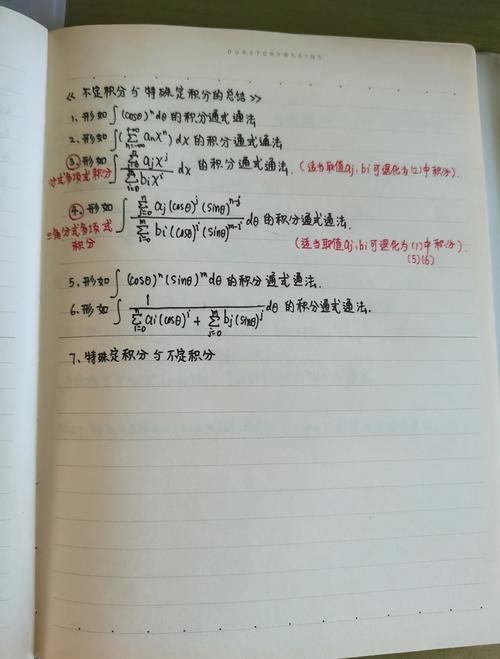 OURSTORYBEGINS
《不定积分与特殊定积分的总结》
1、形如∫(cosθ)ⁿdθ的积分通式通法
2、形如∫(∑_{n=-∞}^{+∞} aₙxⁿ)dx的积分通式通法
③、形如∫ (∑_{j=0}^{n} aⱼxʲ)/(∑_{i=0}^{m} bᵢxⁱ) dx的积分通式通法.(适当取值aj,bi可退化为(2)中积分).
分式多项式积分
④、形如∫ (∑_{j=0}^{n} aⱼ(cosθ)ʲ(sinθ)ⁿ⁻ʲ)/(∑_{i=0}^{m} bᵢ(cosθ)ⁱ(sinθ)ᵐ⁻ⁱ) dθ的积分通式通法.
三角分式多项式
积分
(适当取值aj,bi可退化为(1)中积分).
(5)(6)
5、形如∫(cosθ)ⁿ(sinθ)ᵐdθ的积分通式通法.
6、形如∫ 1/(∑_{i=0}^{n} aᵢ(cosθ)ⁱ + ∑_{j=0}^{m} bⱼ(sinθ)ʲ) dθ的积分通式通法.
7、特殊定积分与不定积分